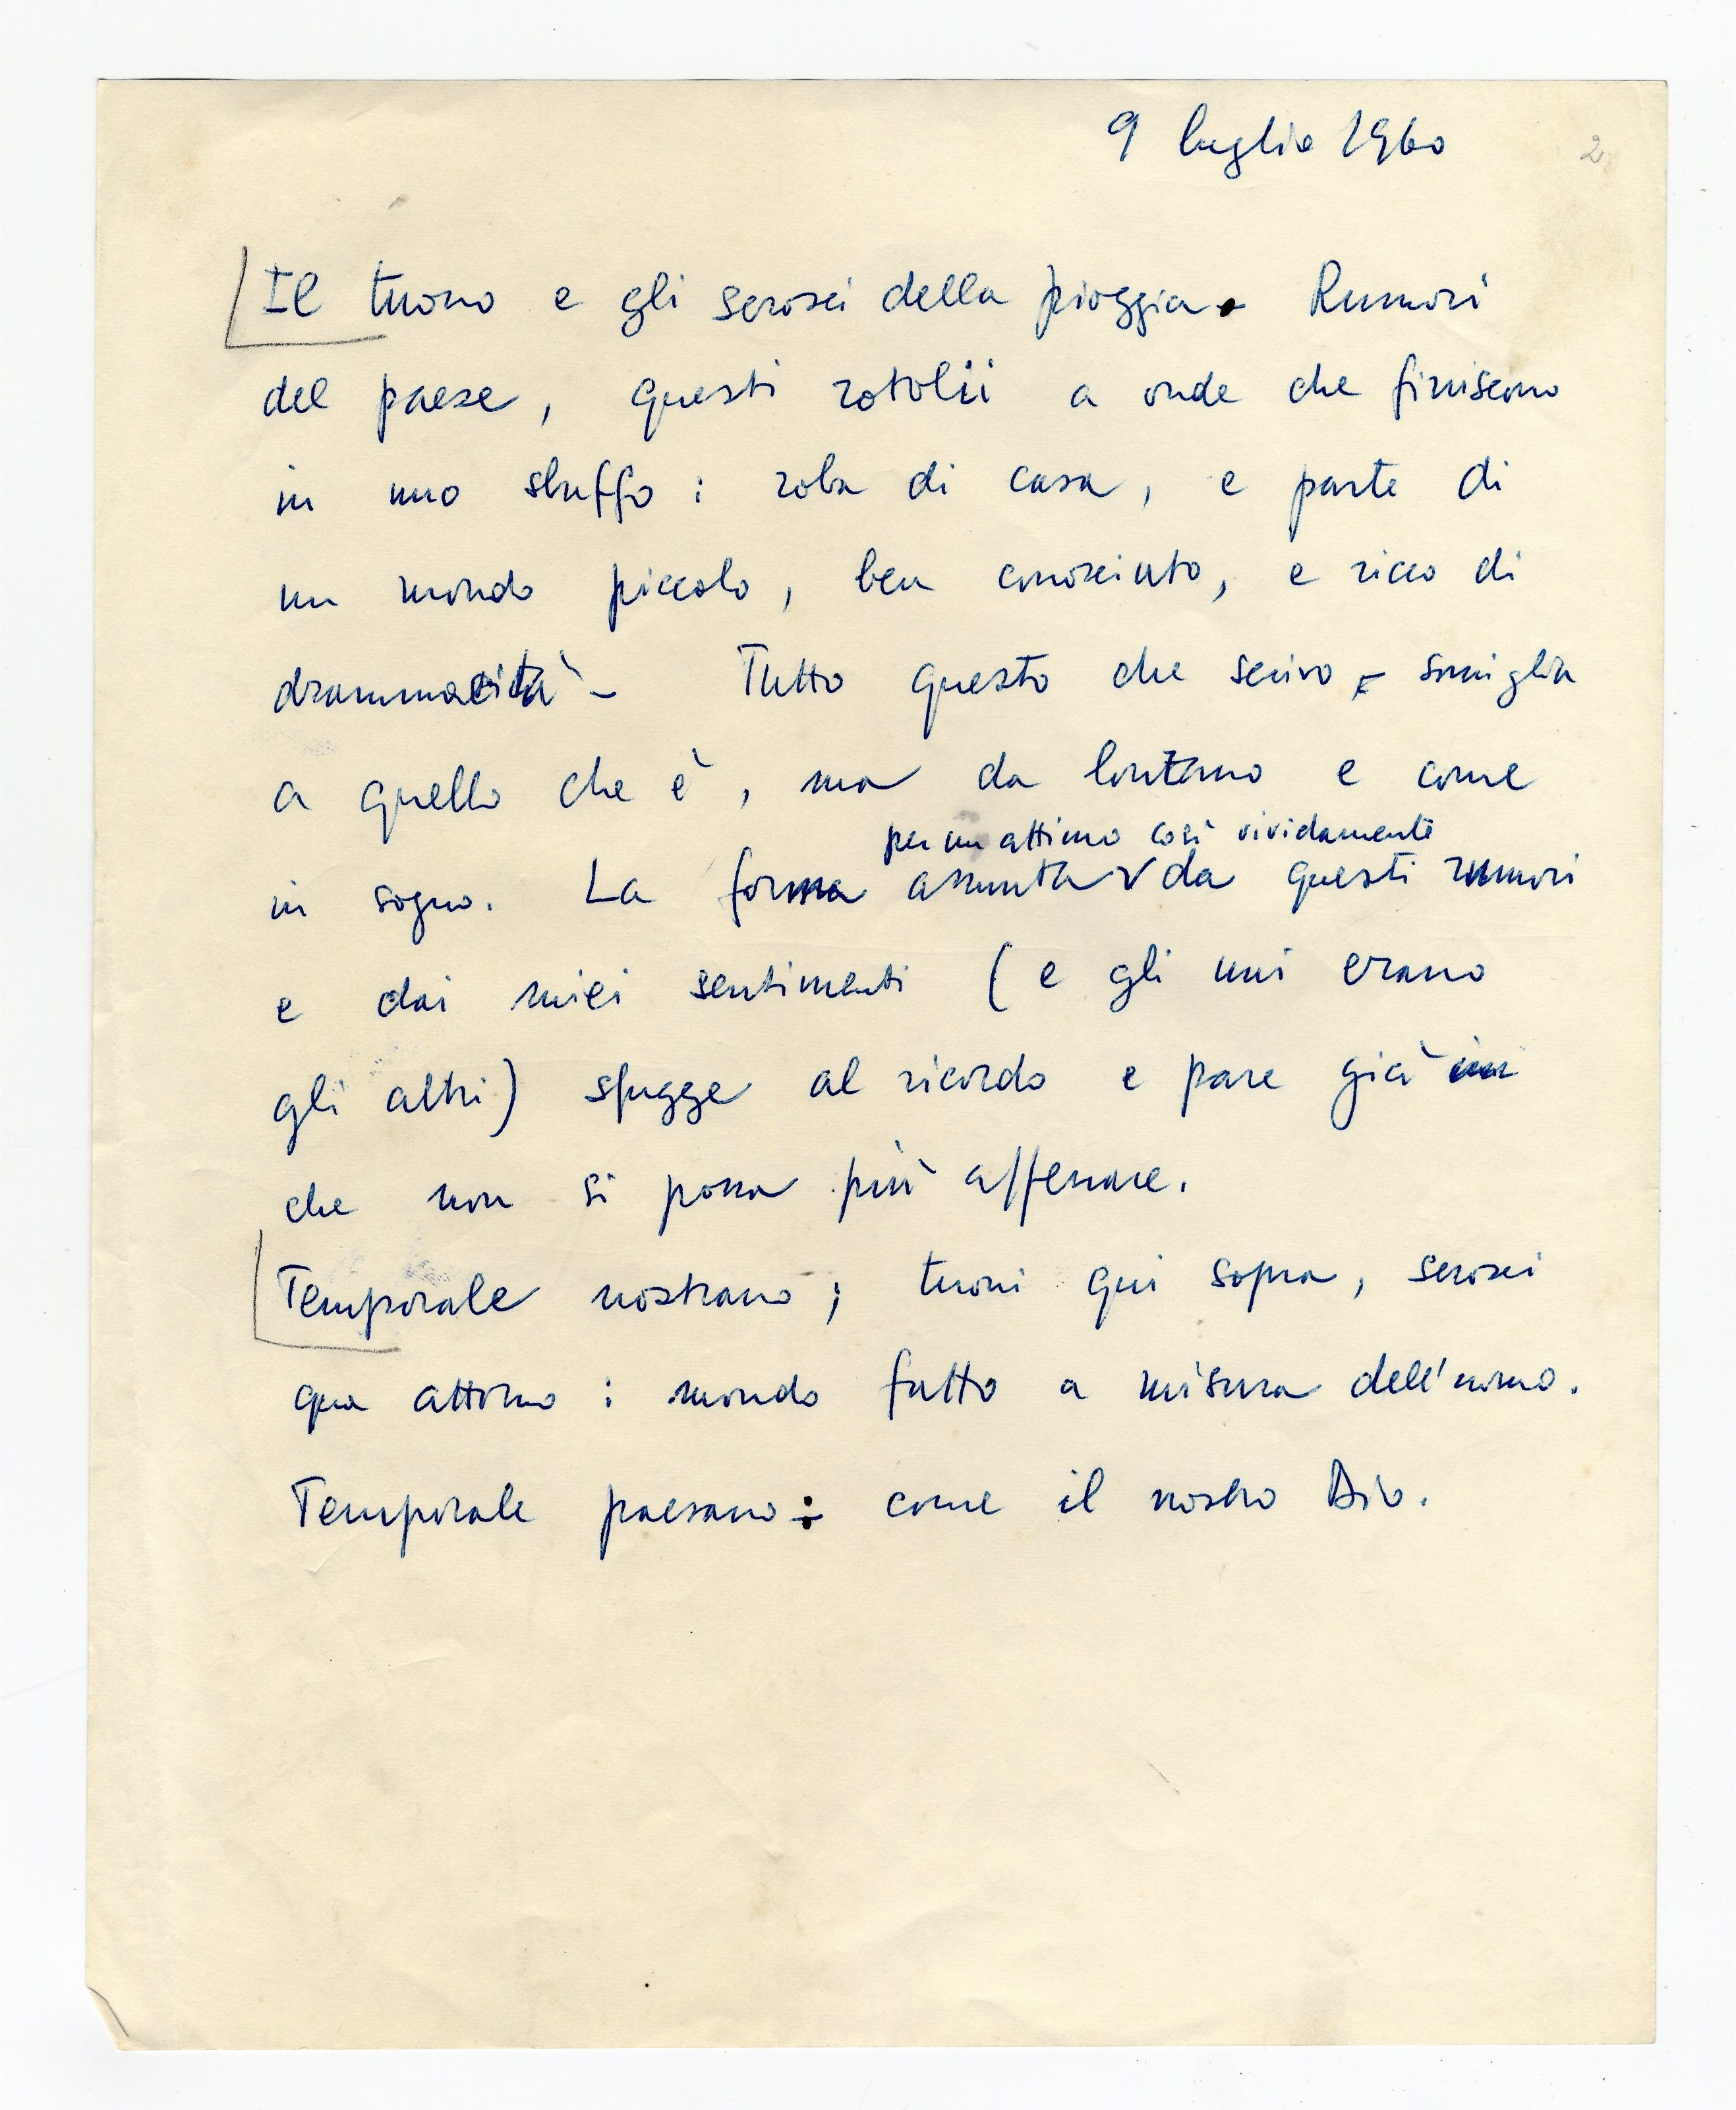 9 luglio 1960
2
Il tuono e gli scrosci della pioggia. Rumori
del paese, questi rotolii a onde che finiscono
in uno sbuffo: roba di casa, e parte di
un mondo piccolo, ben conosciuto, e ricco di
drammaticità – Tutto questo che scrivo, somiglia
a quello che è, ma da lontano e come
per un attimo così vividamente
in sogno. La forma assunta da questi rumori
e dai miei sentimenti (e gli uni erano
gli altri) sfugge al ricordo e pare già
che non si possa più afferrare.
Temporale nostrano; tuoni qui sopra, scrosci
qua attorno: mondo fatto a misura dell'uomo.
Temporale paesano: come il nostro Dio.